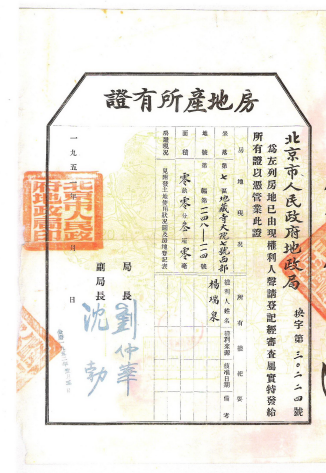 房地產所有證
北京市人民政府地政局
換字第三〇二二四號
為左列房地已由現權利人聲請登記經審查屬實特發給
所有證以憑管業此證
房地現況
坐落 第七區地藏寺大院七號西部
地號 第 幅第一二四八—二四號
面積 零 零 叁 零
房屋現況 見附發土地使用狀況圖及房地登記表
所有權經歷
權利人姓名
楊瑞泉
備考
一九五 年 月 日
局長 劉仲華
副局長 沈勃
北京市人民政
府地政局印